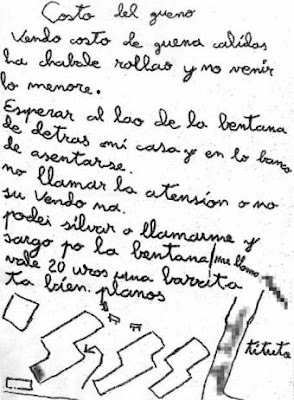 Costo del gueno
Vendo costo de guena calidas
ha chabale rollao y no venir
lo menore.
Esperar al lao de la bentana
de detras mi casa y en lo banco
de asentarse.
no llamar la atensión o no
su vendo na.
podei silvar o llamarme y
sargo po la bentana/me llamo
vale 20 uros una barrita
ta bien. planos
tituta